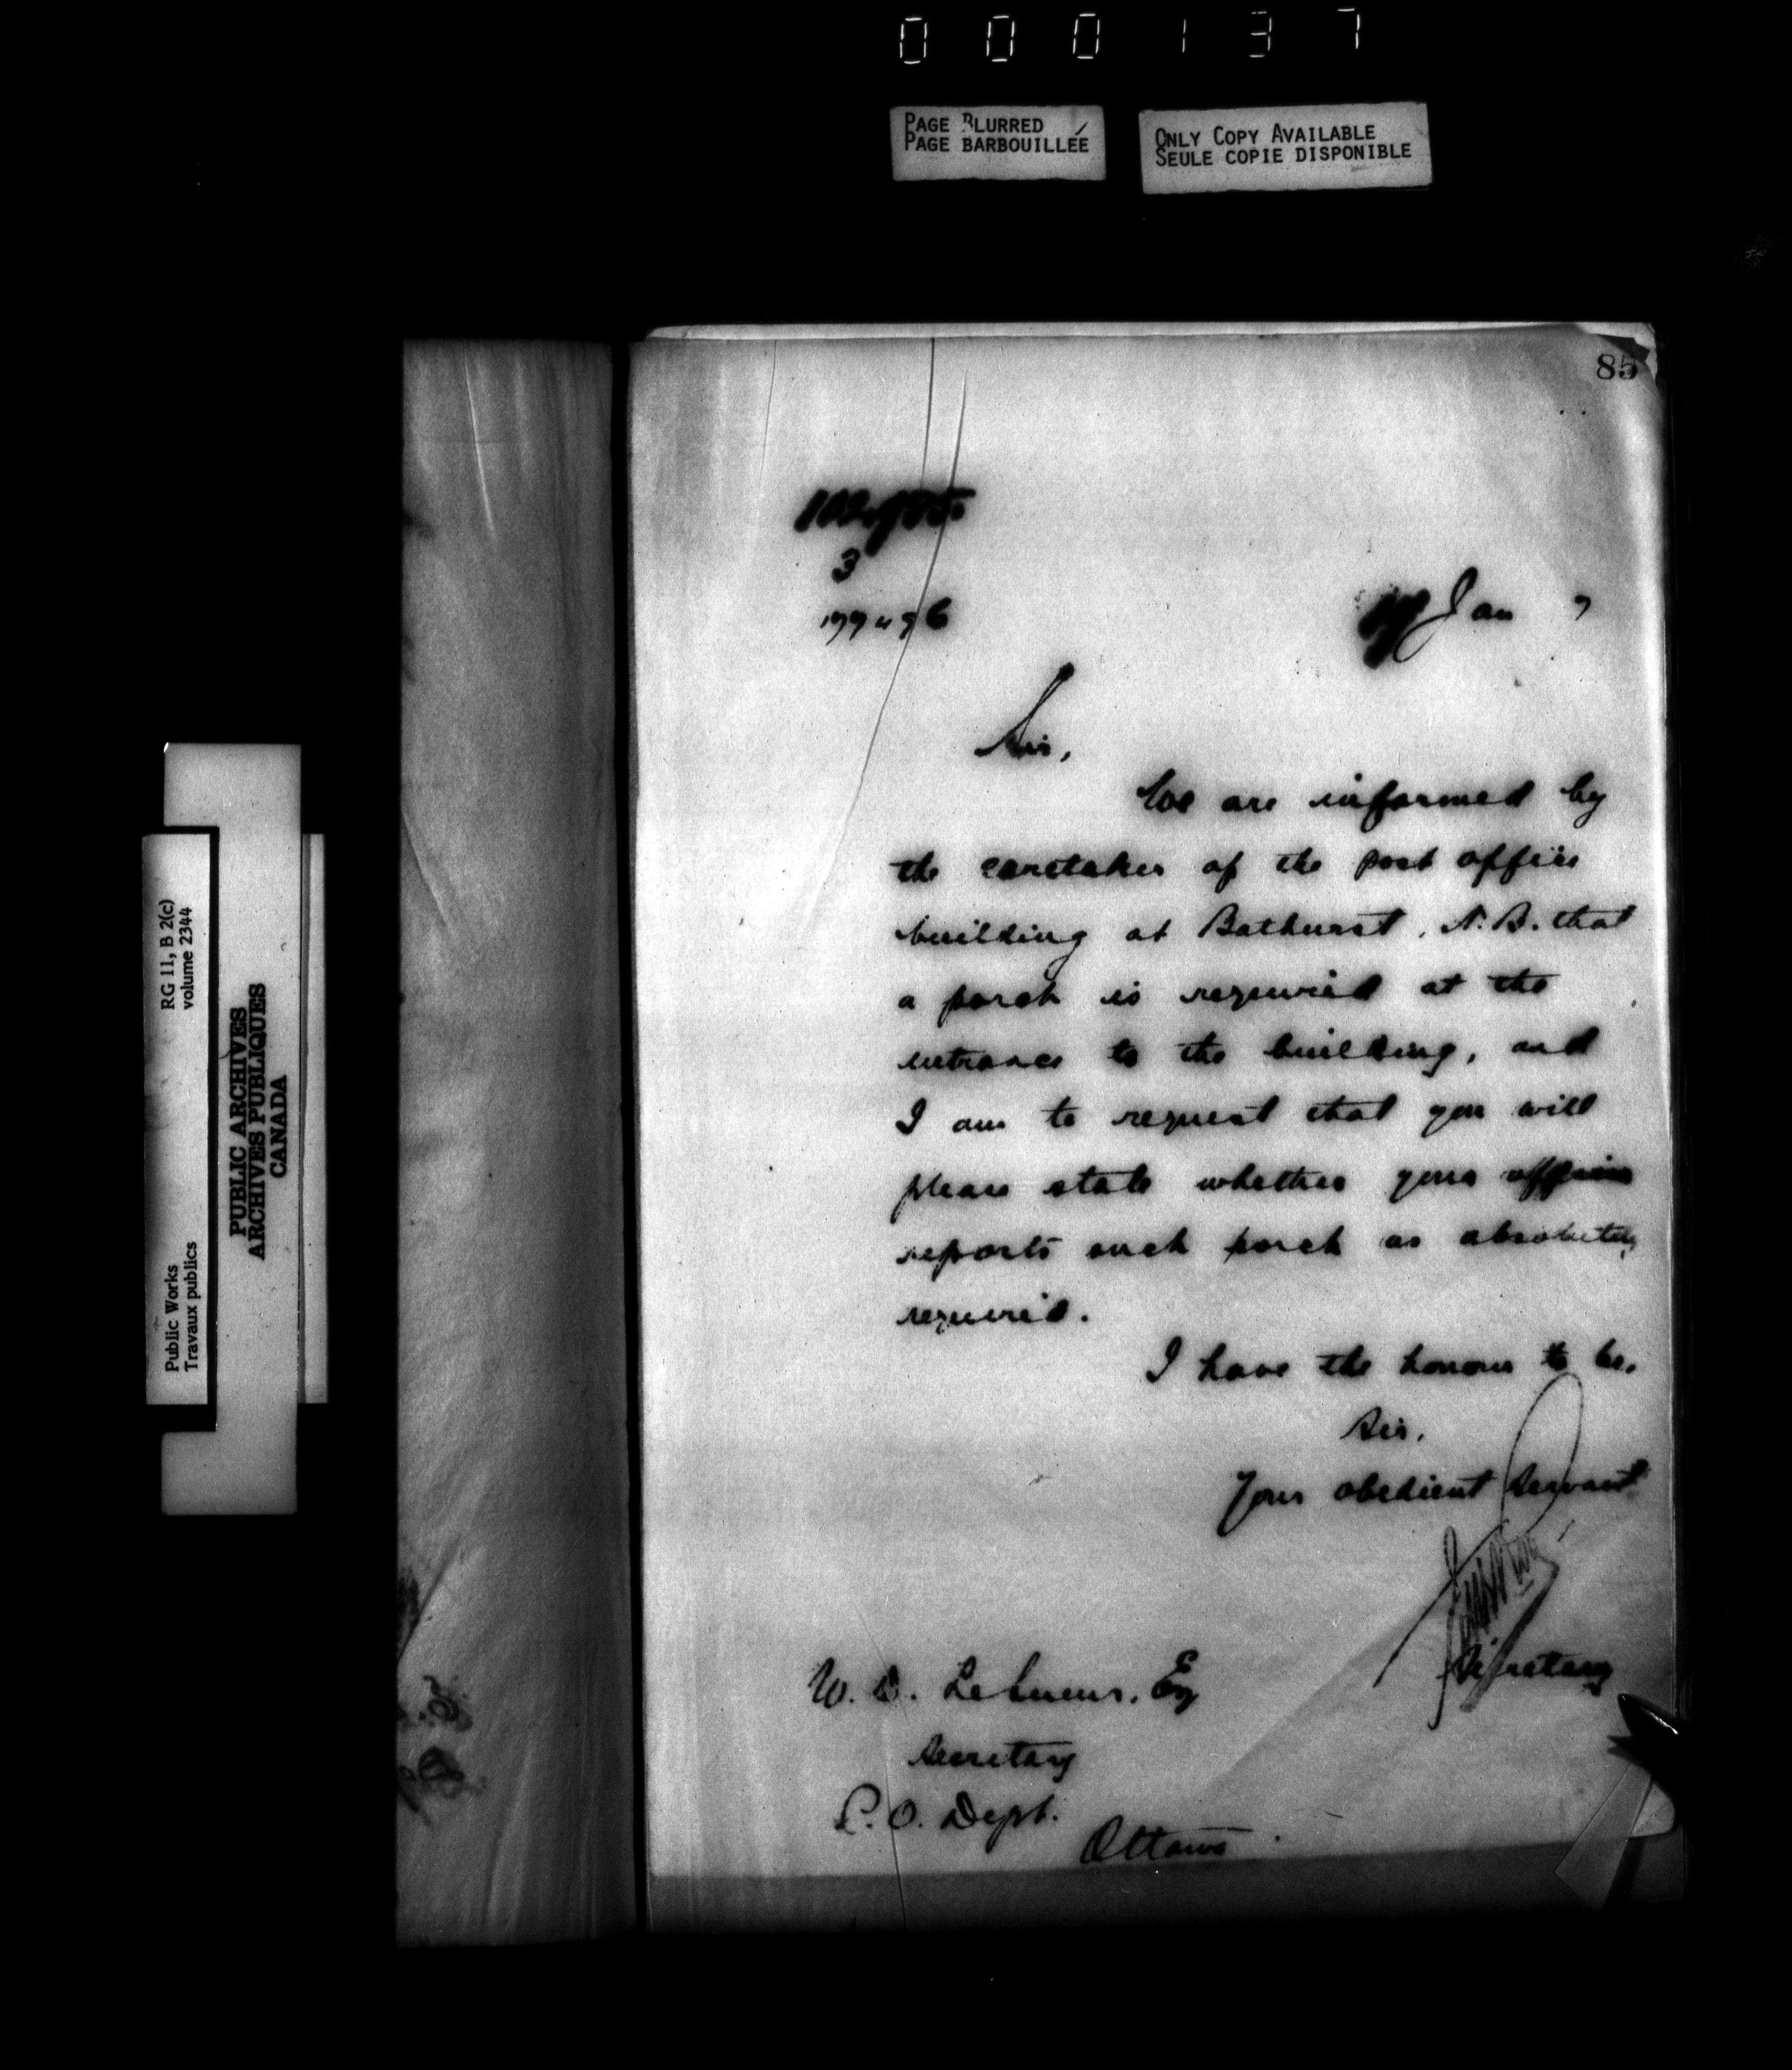 0 0 0 1 3 7
PAGE BLURRED
PAGE BARBOUILLÉE
ONLY COPY AVAILABLE
SEULE COPIE DISPONIBLE
85
3
Jan 7
Sir,
We are informed by
the caretaker of the post office
building at Bathurst, N.B. that
a porch is required at the
entrance to the building, and
I am to request that you will
please state whether your officer
reports such porch as absolutely
required.
I have the honour to be,
Sir,
Your obedient Servant
Secretary
W. D. LeSueur, Esq
Secretary
P.O. Dept.
Ottawa
RG 11, B 2(c)
volume 2344
Public Works
Travaux publics
PUBLIC ARCHIVES
ARCHIVES PUBLIQUES
CANADA